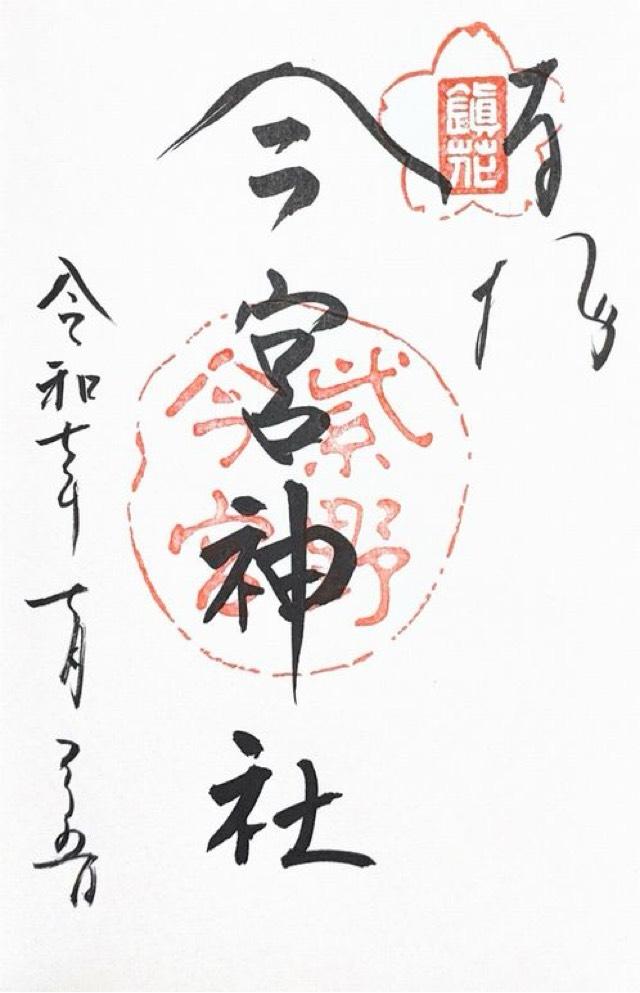 奉拝
鎭花
今宮神社
紫野
今宮
令和七年十月二十五日